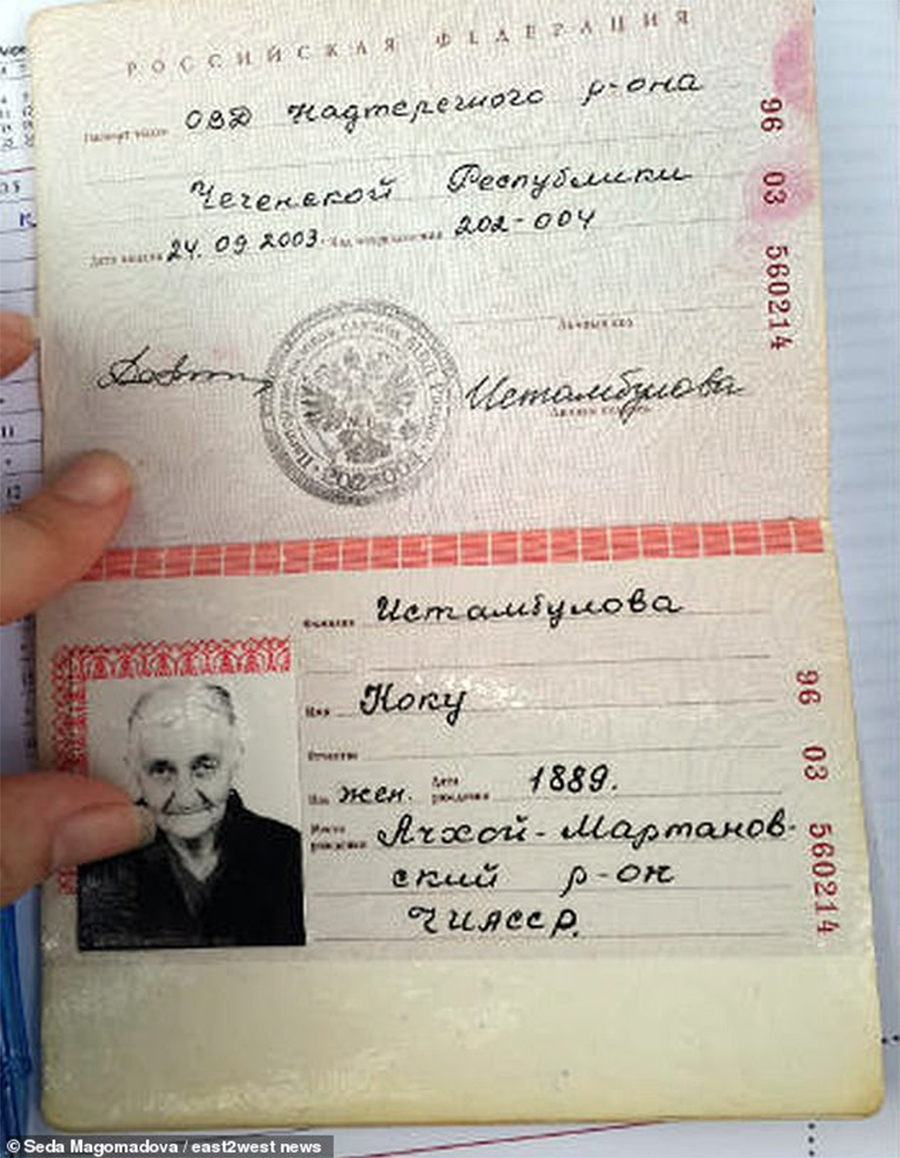 РОССИЙСКАЯ ФЕДЕРАЦИЯ
Паспорт выдан ОВД Надтеречного р-она
Чеченской Республики
Дата выдачи 24.09.2003. Код подразделения 202-004
Личный код
Истамбулова
Личная подпись
202-004
96 03 560214
Фамилия Истамбулова
Имя Коку
Отчество
Пол жен. Дата рождения 1889.
Место рождения Ачхой-Мартанов-
ский р-он
ЧИАССР.
96 03 560214
© Seda Magomadova / east2west news